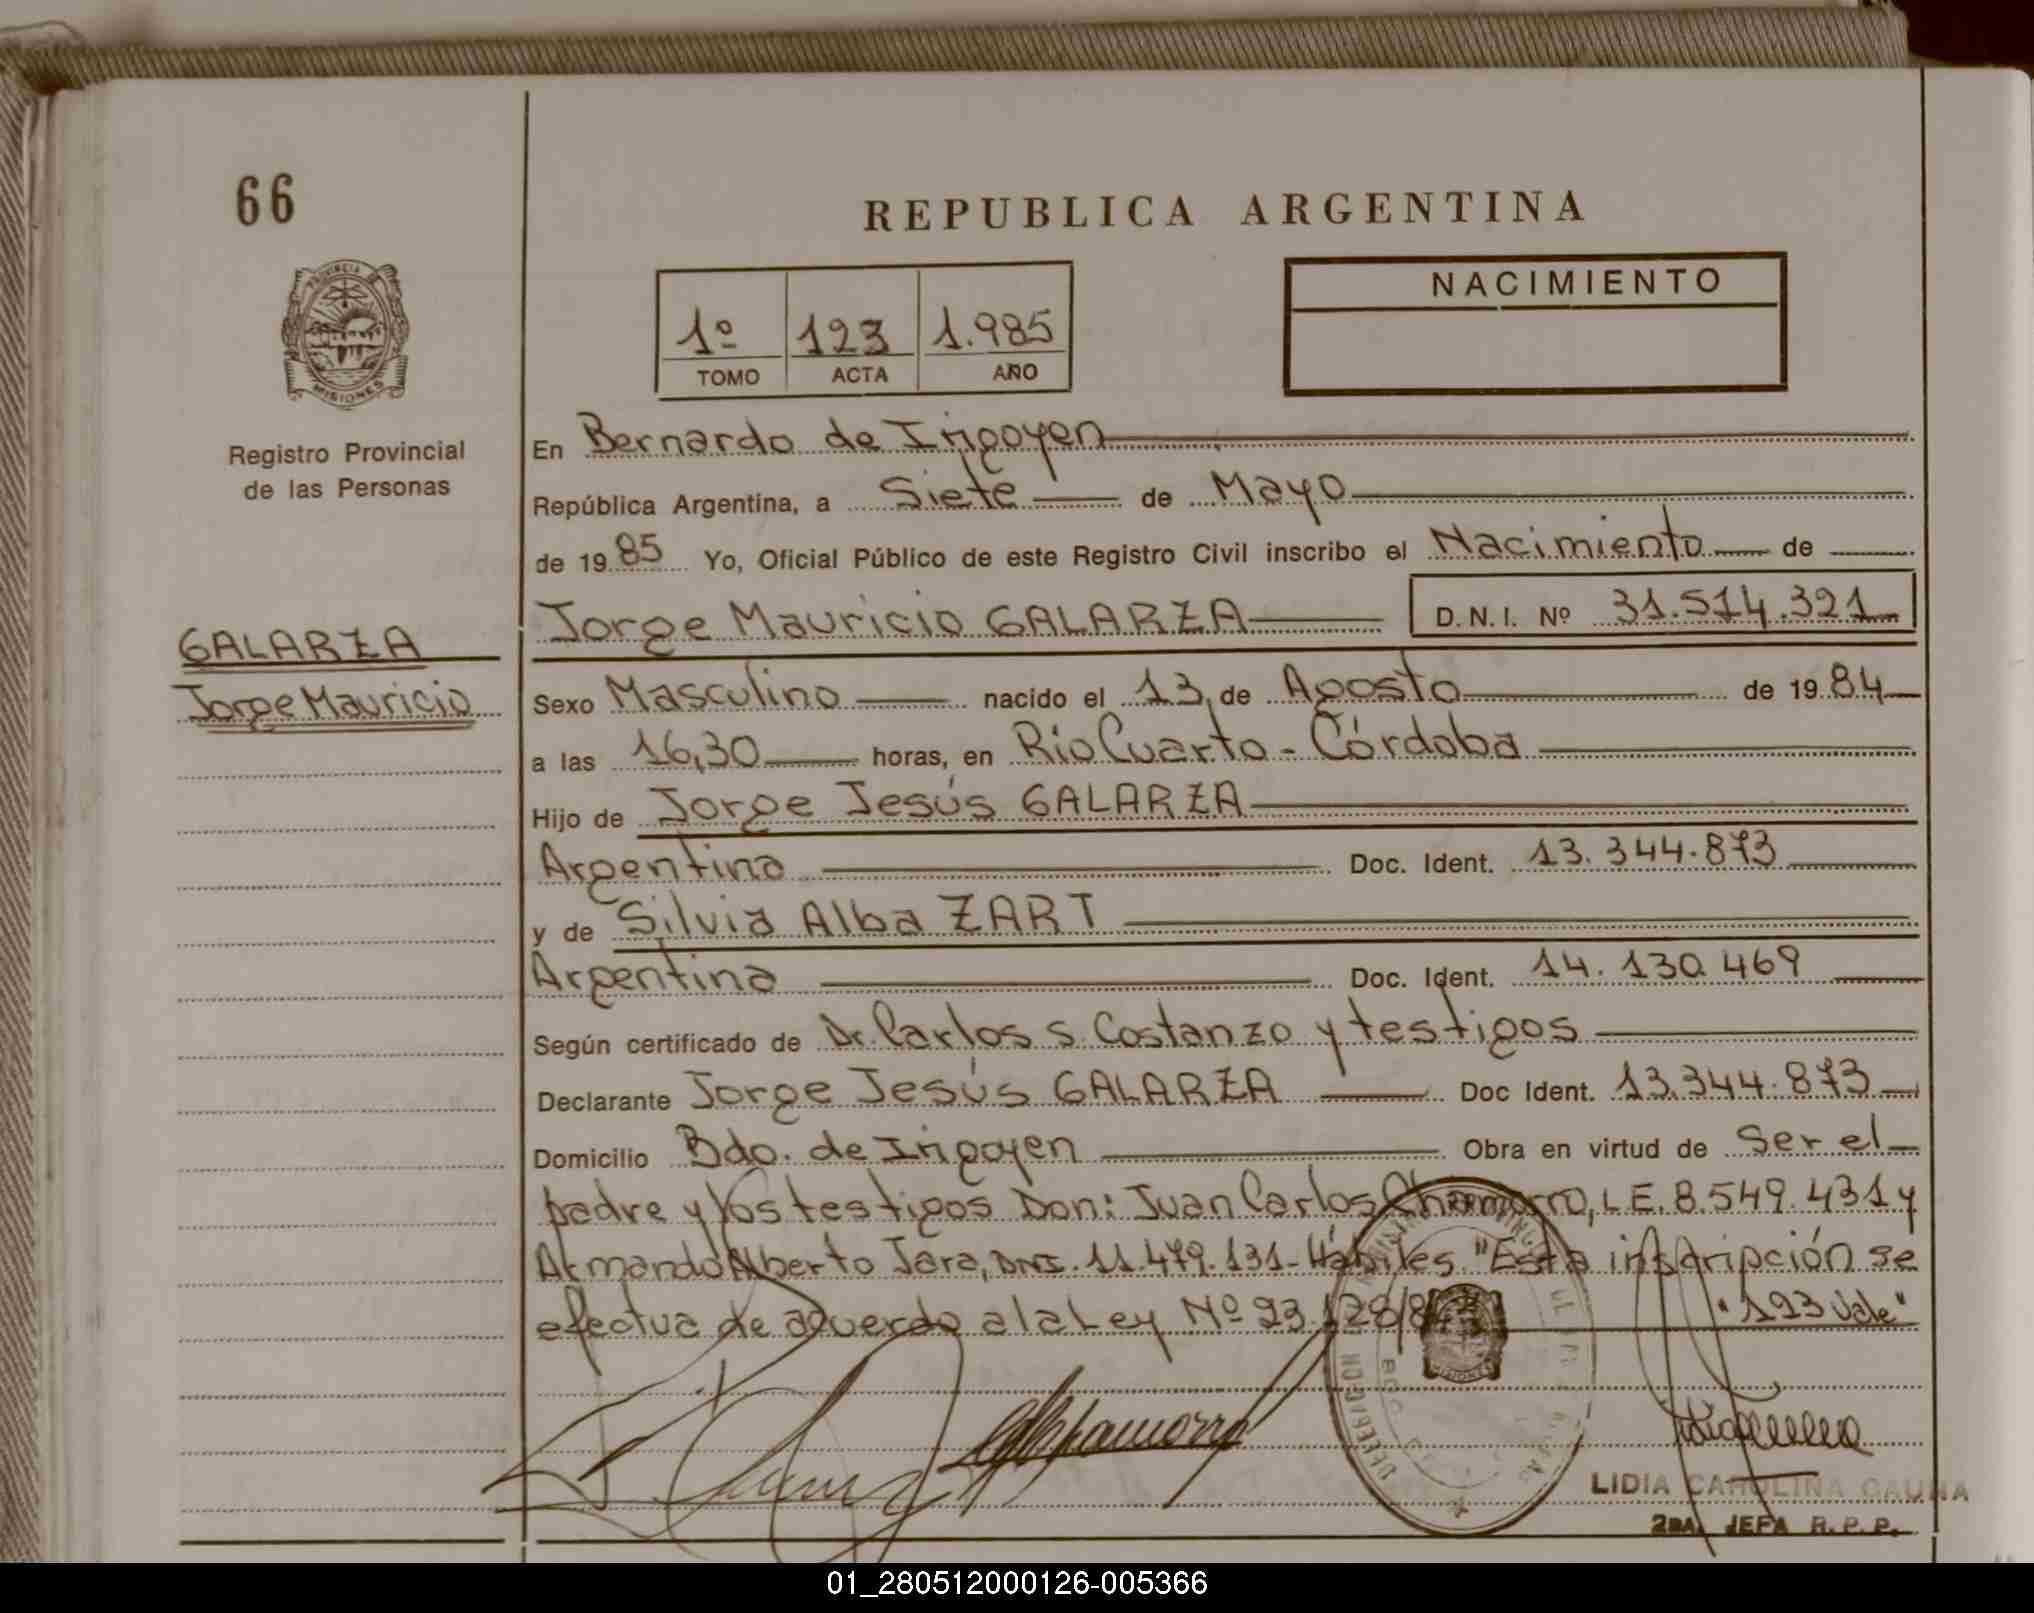 66
REPUBLICA ARGENTINA
PROVINCIA DE
MISIONES
1º 123 1.985
TOMO ACTA AÑO
NACIMIENTO
Registro Provincial
de las Personas
En Bernardo de Irigoyen
República Argentina, a Siete de Mayo
de 19 85 Yo, Oficial Público de este Registro Civil inscribo el Nacimiento de
Jorge Mauricio GALARZA D.N.I. Nº 31.514.321
GALARZA
Jorge Mauricio
Sexo Masculino nacido el 13 de Agosto de 19 84
a las 16,30 horas, en Río Cuarto - Córdoba
Hijo de Jorge Jesús GALARZA
Argentina Doc. Ident. 13.344.873
y de Silvia Alba ZART
Argentina Doc. Ident. 14.130.469
Según certificado de Dr. Carlos S. Costanzo y testigos
Declarante Jorge Jesús GALARZA Doc Ident. 13.344.873
Domicilio Bdo. de Irigoyen Obra en virtud de Ser el
padre y los testigos Don: Juan Carlos Chamorro, L.E. 8.549.431 y
Armando Alberto Jara, DNI. 11.479.131 - Hábiles. "Esta inscripción se
efectua de acuerdo a la Ley Nº 23.128/84 "123 Vale"
LIDIA CAROLINA GAUNA
2DA. JEFA R. P. P.
01_280512000126-005366